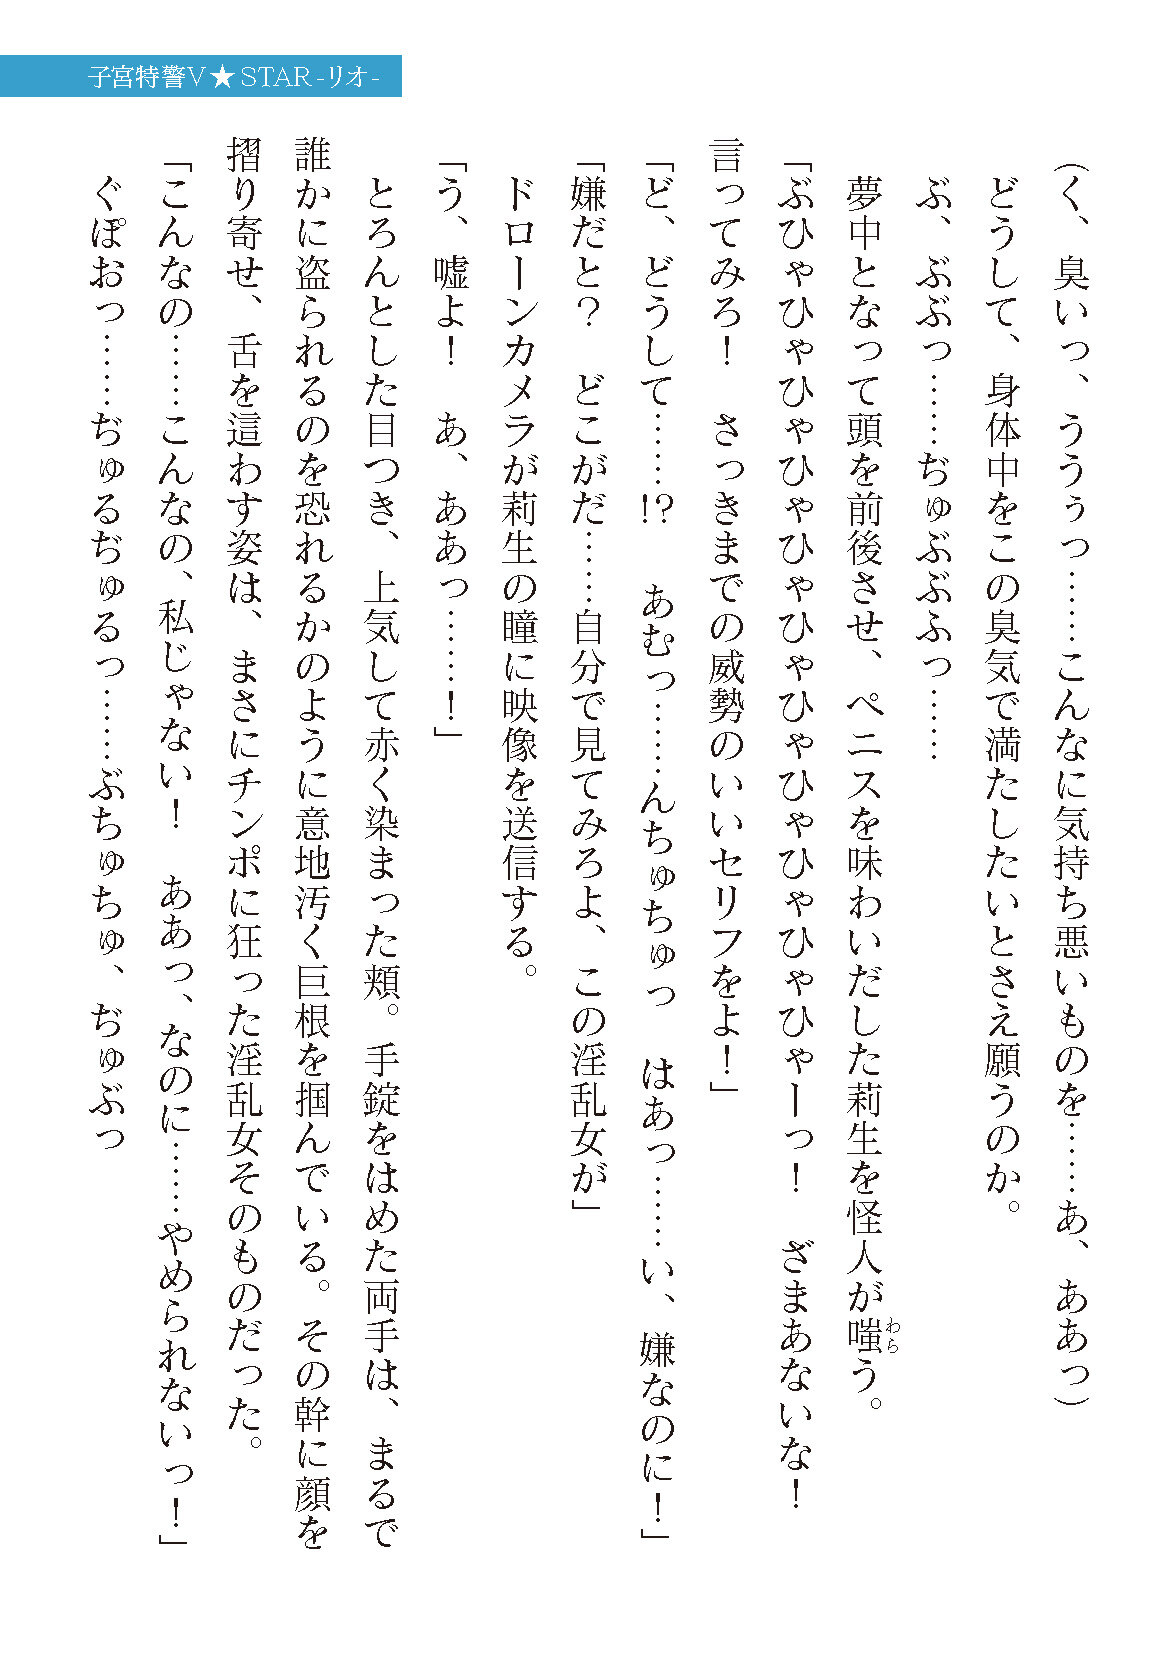 子宮特警V★STAR-リオ-
（く、臭いっ、ううぅっ……こんなに気持ち悪いものを……あ、ああっ）
どうして、身体中をこの臭気で満たしたいとさえ願うのか。
ぶ、ぶぶっ……ぢゅぶぶふっ……
夢中となって頭を前後させ、ペニスを味わいだした莉生を怪人が嗤う。
わら
「ぶひゃひゃひゃひゃひゃひゃひゃひゃひゃひゃひゃーっ！　ざまあないな！
言ってみろ！　さっきまでの威勢のいいセリフをよ！」
「ど、どうして……!?　あむっ……んちゅちゅっ　はあっ……い、嫌なのに！」
「嫌だと？　どこがだ……自分で見てみろよ、この淫乱女が」
ドローンカメラが莉生の瞳に映像を送信する。
「う、嘘よ！　あ、ああっ……！」
とろんとした目つき、上気して赤く染まった頬。手錠をはめた両手は、まるで
誰かに盗られるのを恐れるかのように意地汚く巨根を掴んでいる。その幹に顔を
摺り寄せ、舌を這わす姿は、まさにチンポに狂った淫乱女そのものだった。
「こんなの……こんなの、私じゃない！　ああっ、なのに……やめられないっ！」
ぐぽおっ……ぢゅるぢゅるっ……ぶちゅちゅ、ぢゅぶっ